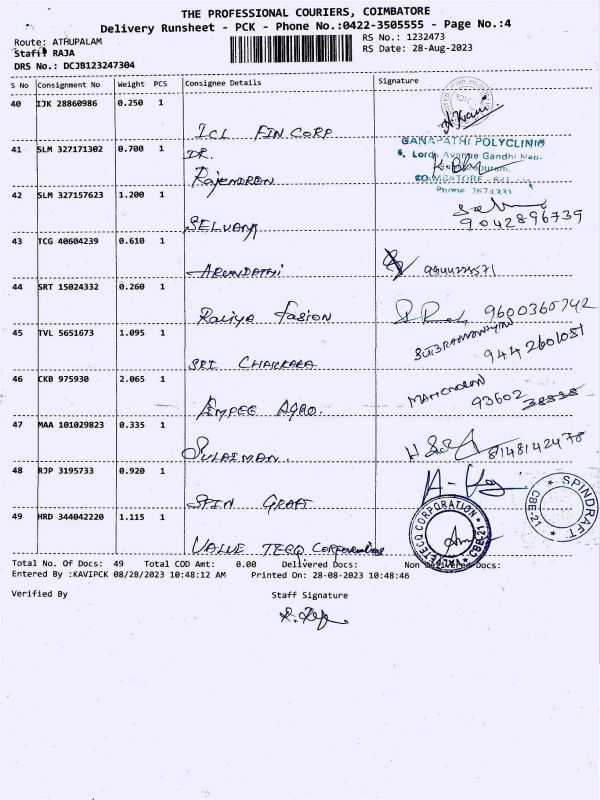 THE PROFESSIONAL COURIERS, COIMBATORE
Delivery Runsheet - PCK - Phone No.:0422-3505555 - Page No.:4
Route: ATHUPALAM
RS No.: 1232473
Staff: RAJA
RS Date: 28-Aug-2023
DRS No.: DCJB123247304
S No Consignment No Weight PCS Consignee Details Signature
40 IJK 28860986 0.250 1
ICL FIN CORP
41 SLM 327171302 0.700 1 DR.
Rajendren
GANAPATHI POLYCLINIC
Phone 2674331
42 SLM 327157623 1.200 1
SELVAM
9042896739
43 TCG 40604239 0.610 1
ARUNDATHI
44 SRT 15024332 0.260 1
Raliya Fasion
9600360742
45 TVL 5651673 1.095 1
SRI CHAKKARA
9442601051
46 CKB 975930 2.065 1
AMPEE AGRO.
93602
47 MAA 101029823 0.335 1
SULAIMAN.
8148142478
48 RJP 3195733 0.920 1
SPIN GRAFT
SPINDRAFT CBE-21
49 HRD 344042220 1.115 1
VALUE TECQ CORPORATION
VALUETECQ CORPORATION CBE-21
Total No. Of Docs: 49 Total COD Amt: 0.00 Delivered Docs: Non Delivered Docs:
Entered By :KAVIPCK 08/28/2023 10:48:12 AM Printed On: 28-08-2023 10:48:46
Verified By Staff Signature